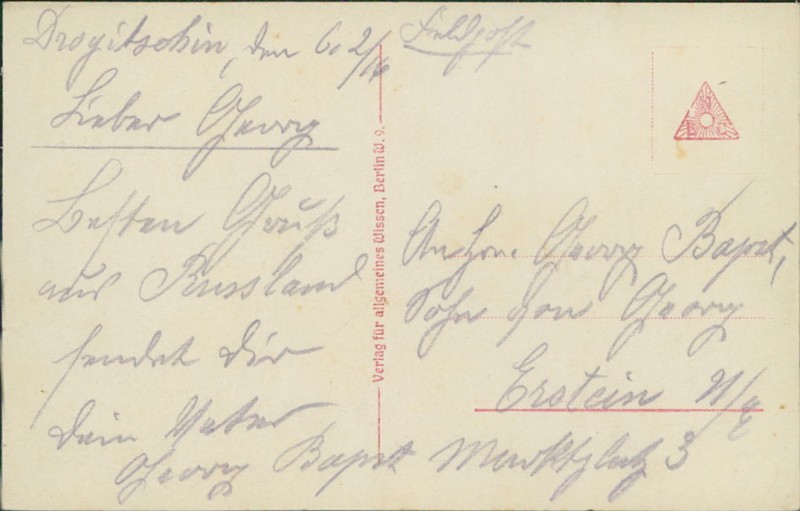 Drogitschin, den 6. 2/16
Lieber Georg
Besten Gruß
aus Russland
sendet Dir
Dein Vater
Georg Bapst
Feldpost
An Hrn. Georg Bapst,
Sohn von Georg
Erstein U/E
Marktplatz 3
Verlag für allgemeines Wissen, Berlin W. 9.